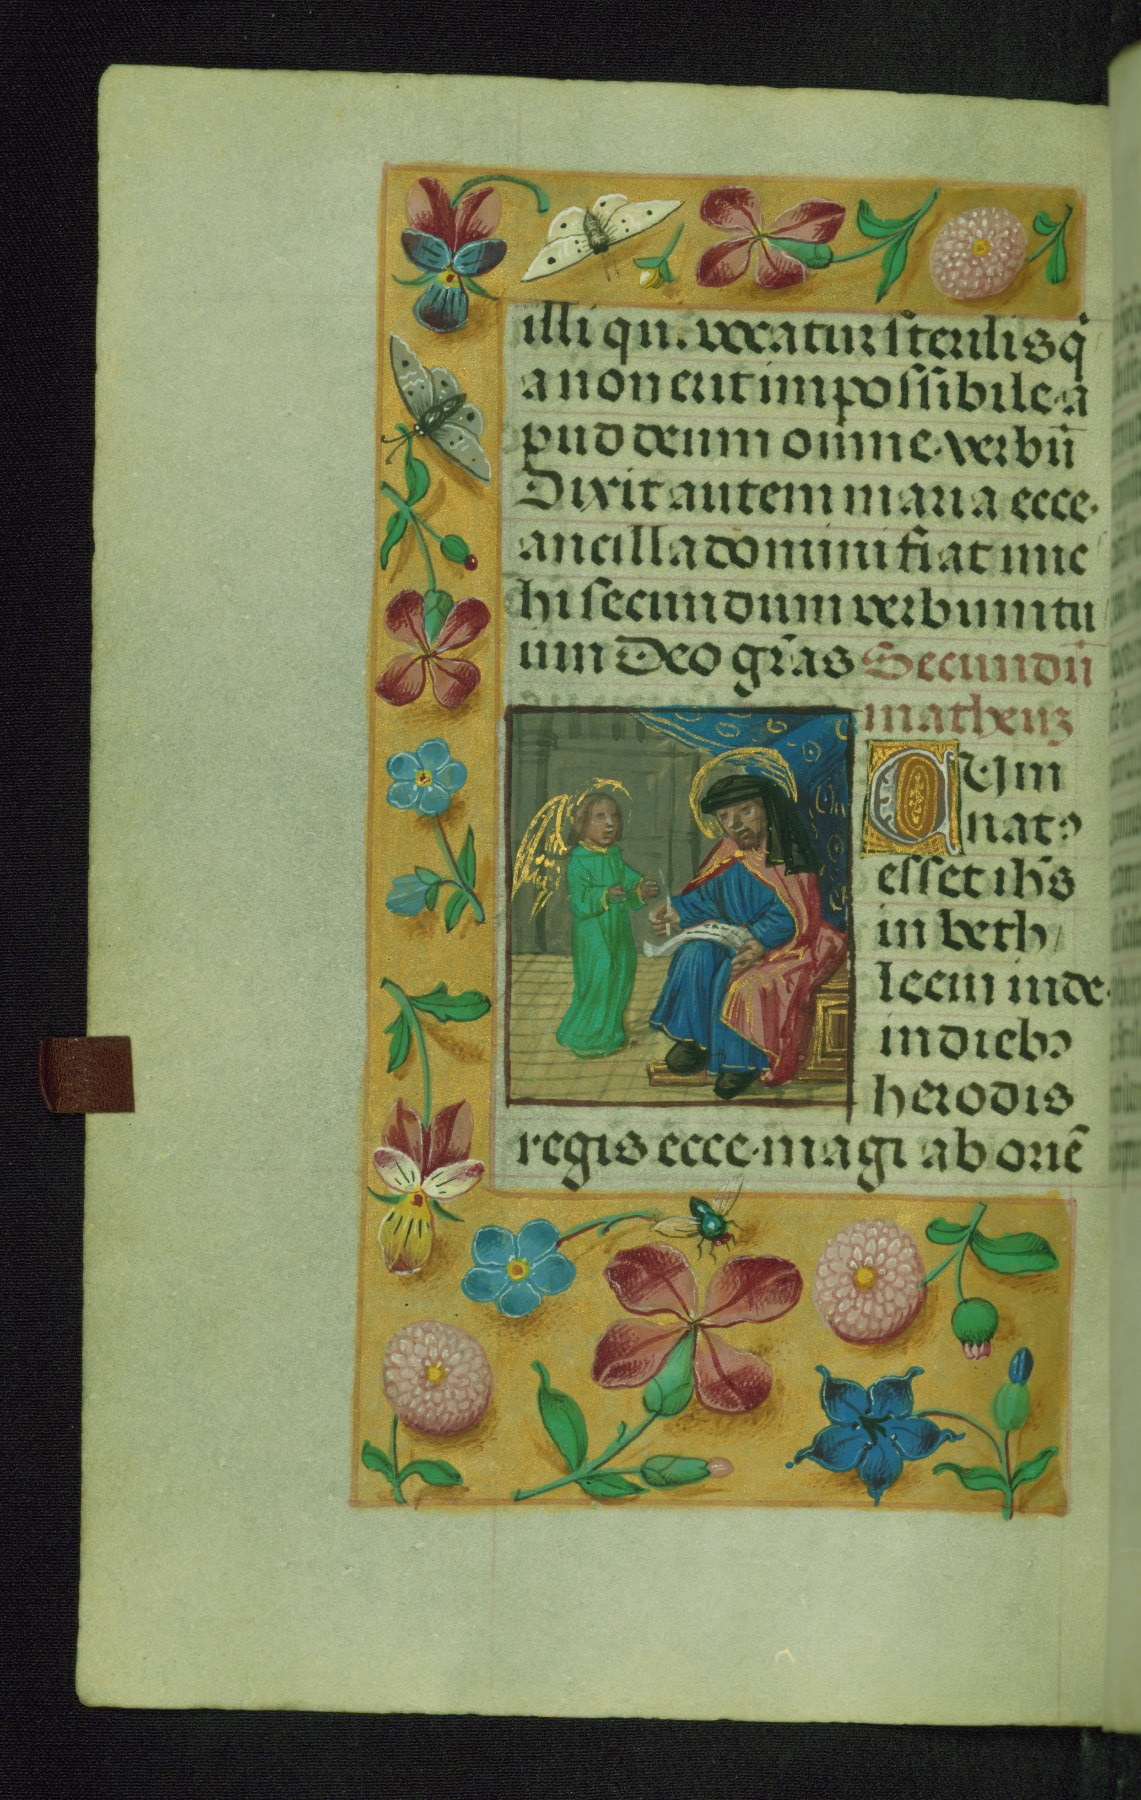 illi que vocatur sterilis q̄
a non erit impossibile a
pud deum omne verbū
Dixit autem maria ecce
ancilla domini fiat mic
hi secundum verbum tu
um Deo gr̄as Secundū
matheuz
CUm
natꝰ
esset ih̄s
in beth
leem inde
in diebꝰ
herodis
regis ecce magi ab oriē